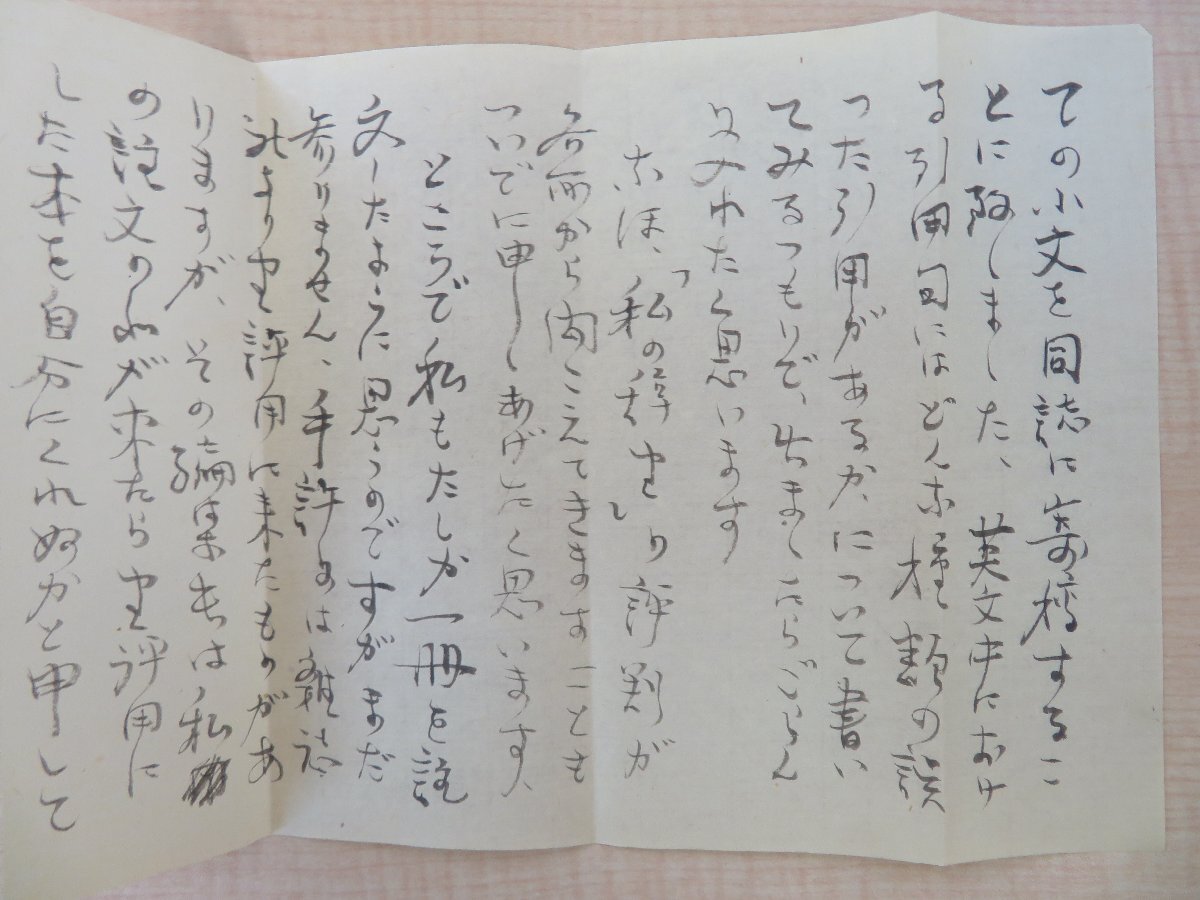 ての小文を同誌に寄稿するこ
とに致しました、英文中におけ
る引用句にはどんな種類の誤
った引用があるか、について書い
てみるつもりで、出ましたらごらん
ねがいたく思います
なほ、「私の辞史」の評判が
各所から聞こえてきますことも
ついでに申しあげたく思います、
ところで私もたしか一冊を註
文したように思うのですがまだ
参りません、手許には雑誌
社より書評用に来たものがあ
りますが、その編集者は私
の註文のが来たら書評用に
した本を自分にくれぬかと申して